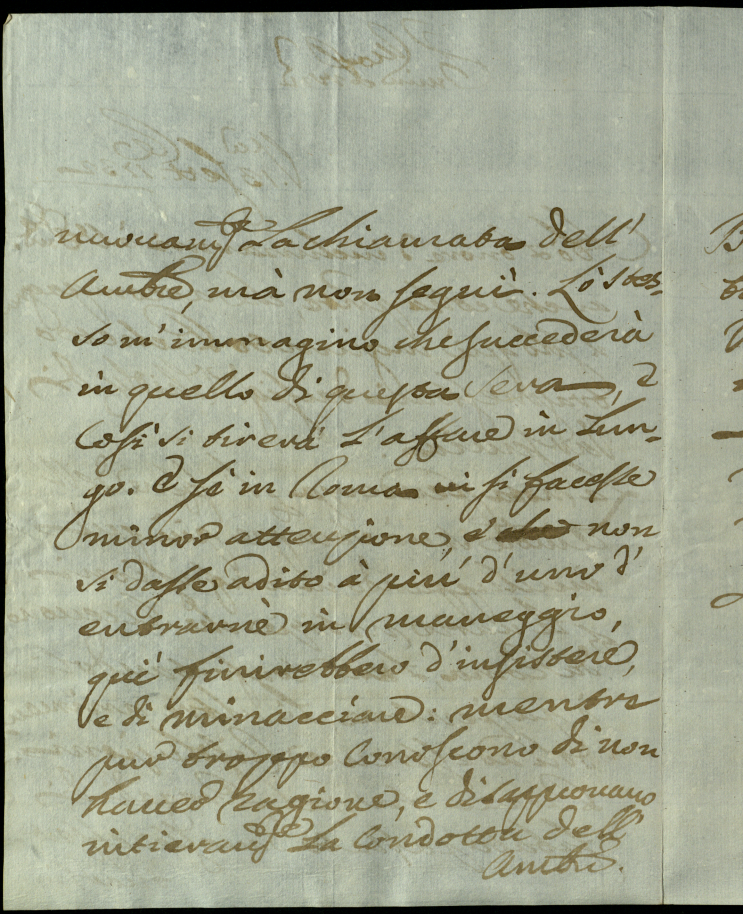 nuovam.te La chiamata dell'
Amb.re, mà non seguì. Lo stes-
so m'immagino che succederà
in quello di questa sera, e
così si tirerà l'affare in Lun-
go. E sè in Roma vi si facesse
minor attenzione, e non
si dasse adito à più d'uno d'
entrarnè in maneggio,
quì finirebbero d'insistere,
e di minacciare: mentre
pur troppo conoscono di non
haver ragione, e disapprovano
intieram.te La Condotta dell'
Amb.re.